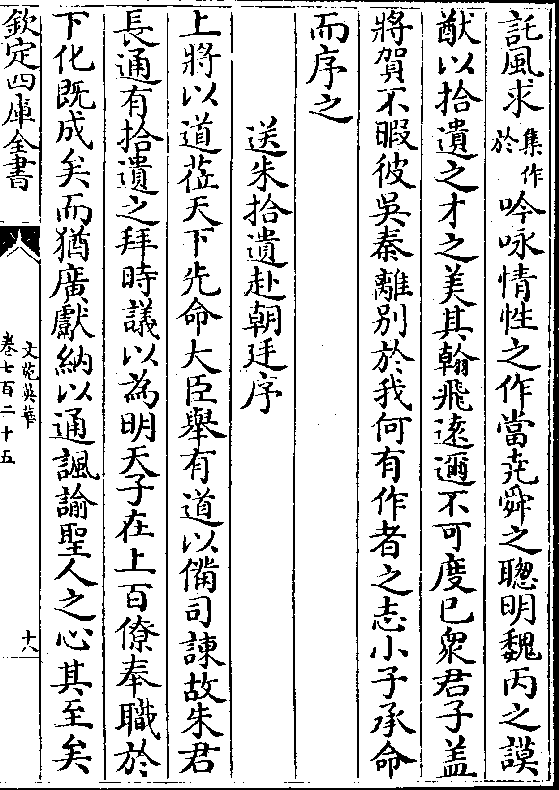 託風求集作於吟咏情性之作當堯舜之聰明魏丙之謨
猷以拾遺之才之美其翰飛遠邇不可度已衆君子盖
將賀不暇彼吳秦離別於我何有作者之志小子承命
而序之
送朱拾遺赴朝廷序
上將以道莅天下先命大臣舉有道以備司諫故朱君
長通有拾遺之拜時議以為明天子在上百僚奉職於
下化既成矣而猶廣獻納以通諷諭聖人之心其至矣
欽定四庫全書
文苑英華
卷七百二十五
十八